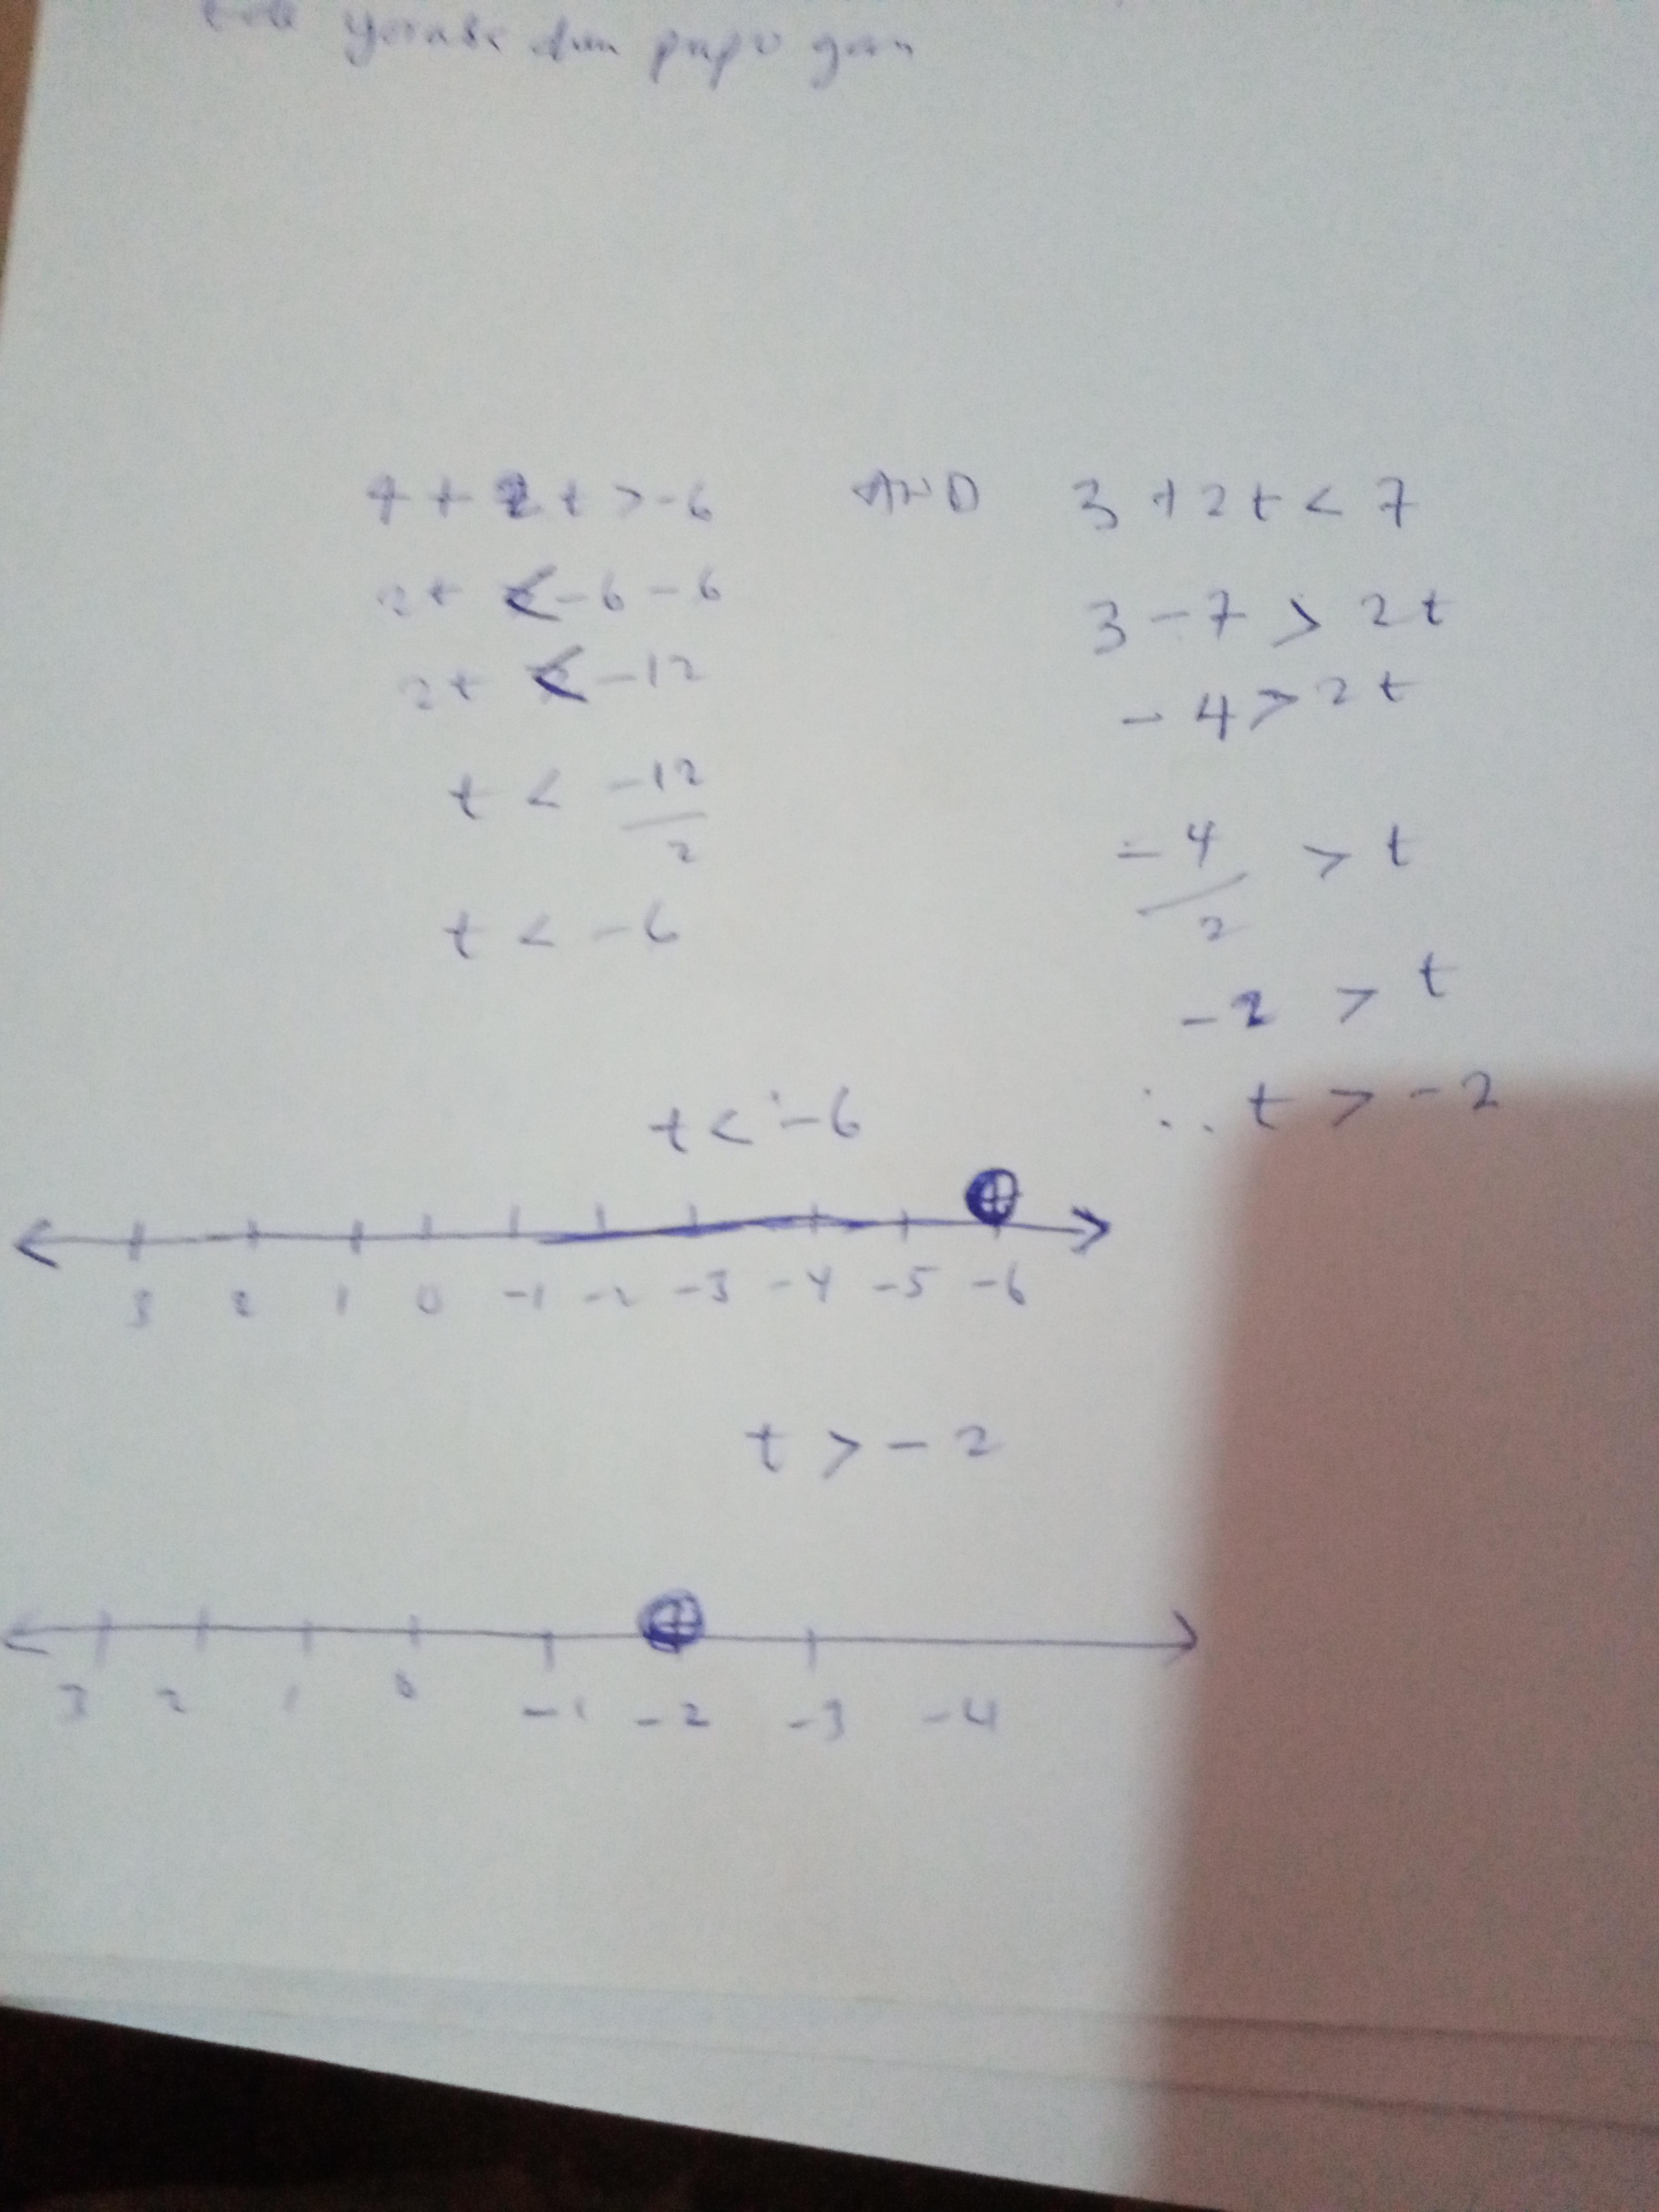 4 + 2t > -6 AND 3 + 2t < 7
2t < -6 - 6 3 - 7 > 2t
2t < -12 -4 > 2t
t < -12/2 -4/2 > t
t < -6 -2 > t
t < -6 ∴ t > -2
3 2 1 0 -1 -2 -3 -4 -5 -6
t > -2
3 2 1 0 -1 -2 -3 -4